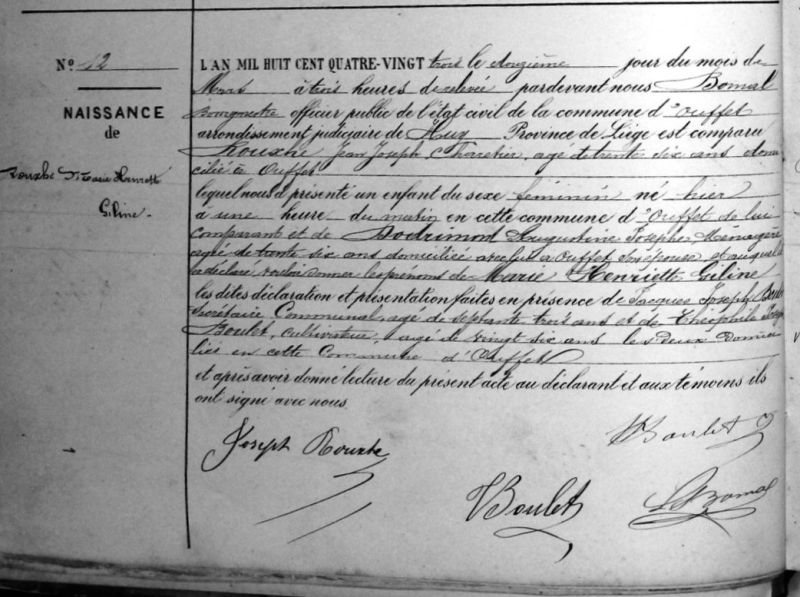 N.o 12
NAISSANCE
de
Rouxhe Marie Henriette
Giline.
L AN MIL HUIT CENT QUATRE-VINGT trois le douzième jour du mois de
Mars à trois heures de relevée pardevant nous Bomal
Bourgmestre officier public de l'état civil de la commune d'Ouffet
arrondissement judiciaire de Huy Province de Liége est comparu
Rouxhe Jean Joseph, Charetier, agé de trente six ans domi
cilié à Ouffet
lequel nous a présenté un enfant du sexe féminin né hier
à une heure du matin en cette commune d'Ouffet de lui
comparant et de Dodrimont Augustine Josephe Ménagère
agée de trente six ans domiciliée avec lui à Ouffet son épouse, et auquel il
a déclaré vouloir donner les prénoms de Marie Henriette Giline
les dites déclaration et présentation faites en présence de Jacques Joseph Boulet
Secrétaire Communal, agé de septante trois ans et de Théophile Joseph
Boulet, cultivateur, agé de vingt six ans les deux domici
liés en cette Commune d'Ouffet
et après avoir donné lecture du présent acte au déclarant et aux témoins ils
ont signé avec nous.
Joseph Rouxhe
Boulet
Boulet
Bomal